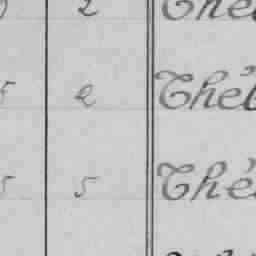 2 Thé
5 2 Thé
5 5 Thé